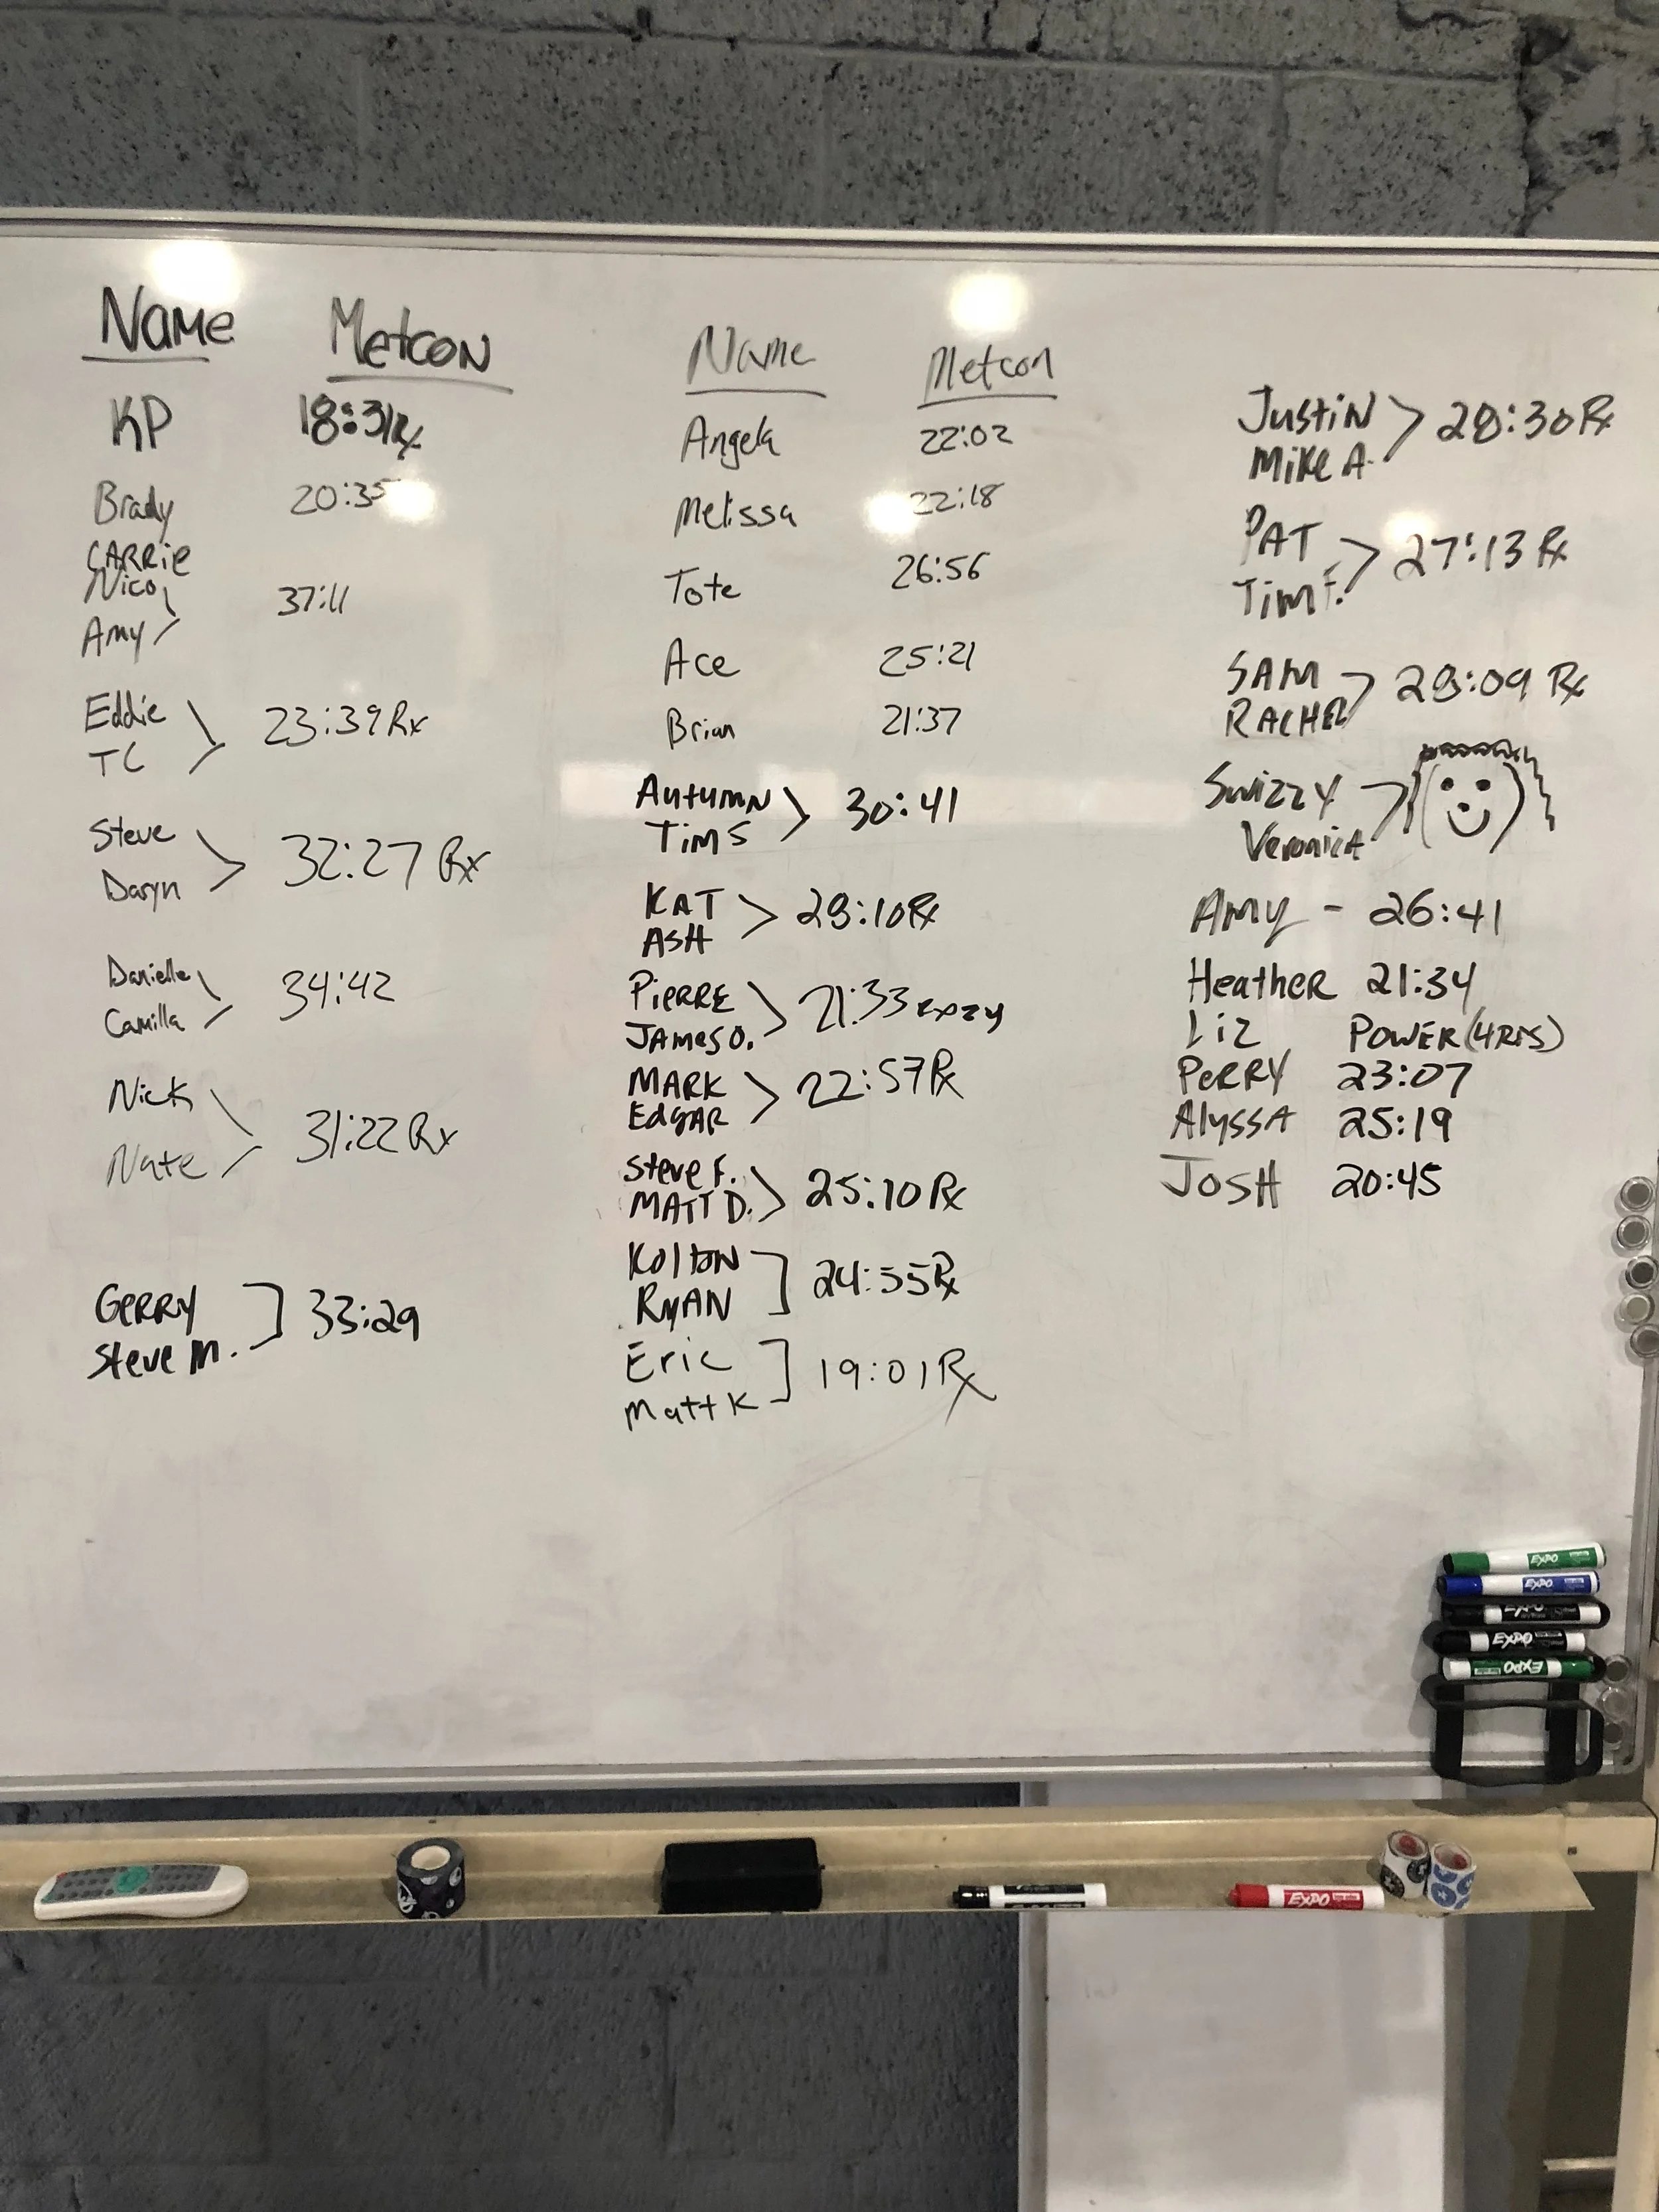 Name Metcon
KP 18:31Rx
Brady 20:35
CARRie
Nico
Amy 37:11
Eddie
TC 23:39 Rx
Steve
Daryn 32:27 Rx
Danielle
Camilla 34:42
Nick
Nate 31:22 Rx
GeRRY
Steve M. 33:29
Name Metcon
Angela 22:02
Melissa 22:18
Tote 26:56
Ace 25:21
Brian 21:37
AutumN
Tim S 30:41
KAT
ASH 28:10 Rx
PieRRE
JAMes O. 21:33
MARK
EdgAR 22:57 Rx
Steve F.
MATT D. 25:10 Rx
KoltoN
RyAN 24:55 Rx
Eric
Matt K 19:01 Rx
JustiN
Mike A. 28:30 Rx
PAT
Tim F. 27:13 Rx
SAM
RACHEL 28:09 Rx
Swizzy
VeroniCA
AMy - 26:41
HeatheR 21:34
Liz POWER (4RDS)
PeRRY 23:07
AlyssA 25:19
JOSH 20:45
EXPO
EXPO
EXPO
EXPO
EXPO
EXPO